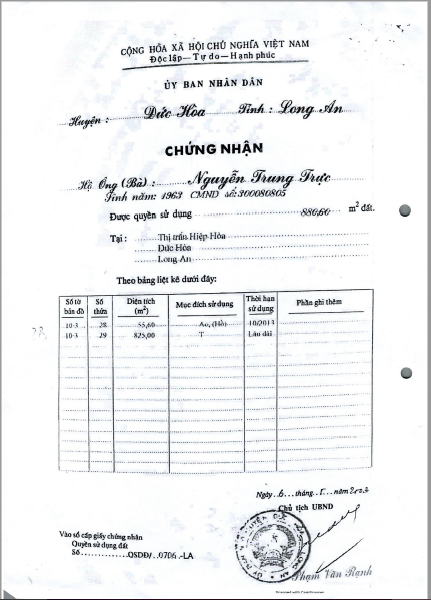 CỘNG HÒA XÃ HỘI CHỦ NGHĨA VIỆT NAM
Độc lập — Tự do — Hạnh phúc
ỦY BAN NHÂN DÂN
Huyện: Đức Hòa Tỉnh: Long An
CHỨNG NHẬN
Hộ Ông (Bà): Nguyễn Trung Trực
Sinh năm: 1963 CMND số: 300080805
Được quyền sử dụng 880,60 m² đất.
Tại: Thị trấn Hiệp Hòa
Đức Hòa
Long An
Theo bảng liệt kê dưới đây:
Số tờ bản đồ Số thửa Diện tích (m²) Mục đích sử dụng Thời hạn sử dụng Phần ghi thêm
10-3 28 55,60 Ao, (Hồ) 10/2013
10-3 29 825,00 T Lâu dài
Ngày 6 tháng 1 năm
Chủ tịch UBND
Vào sổ cấp giấy chứng nhận
Quyền sử dụng đất
Số QSDĐ/ 0706 -LA
Phạm Văn Rạnh